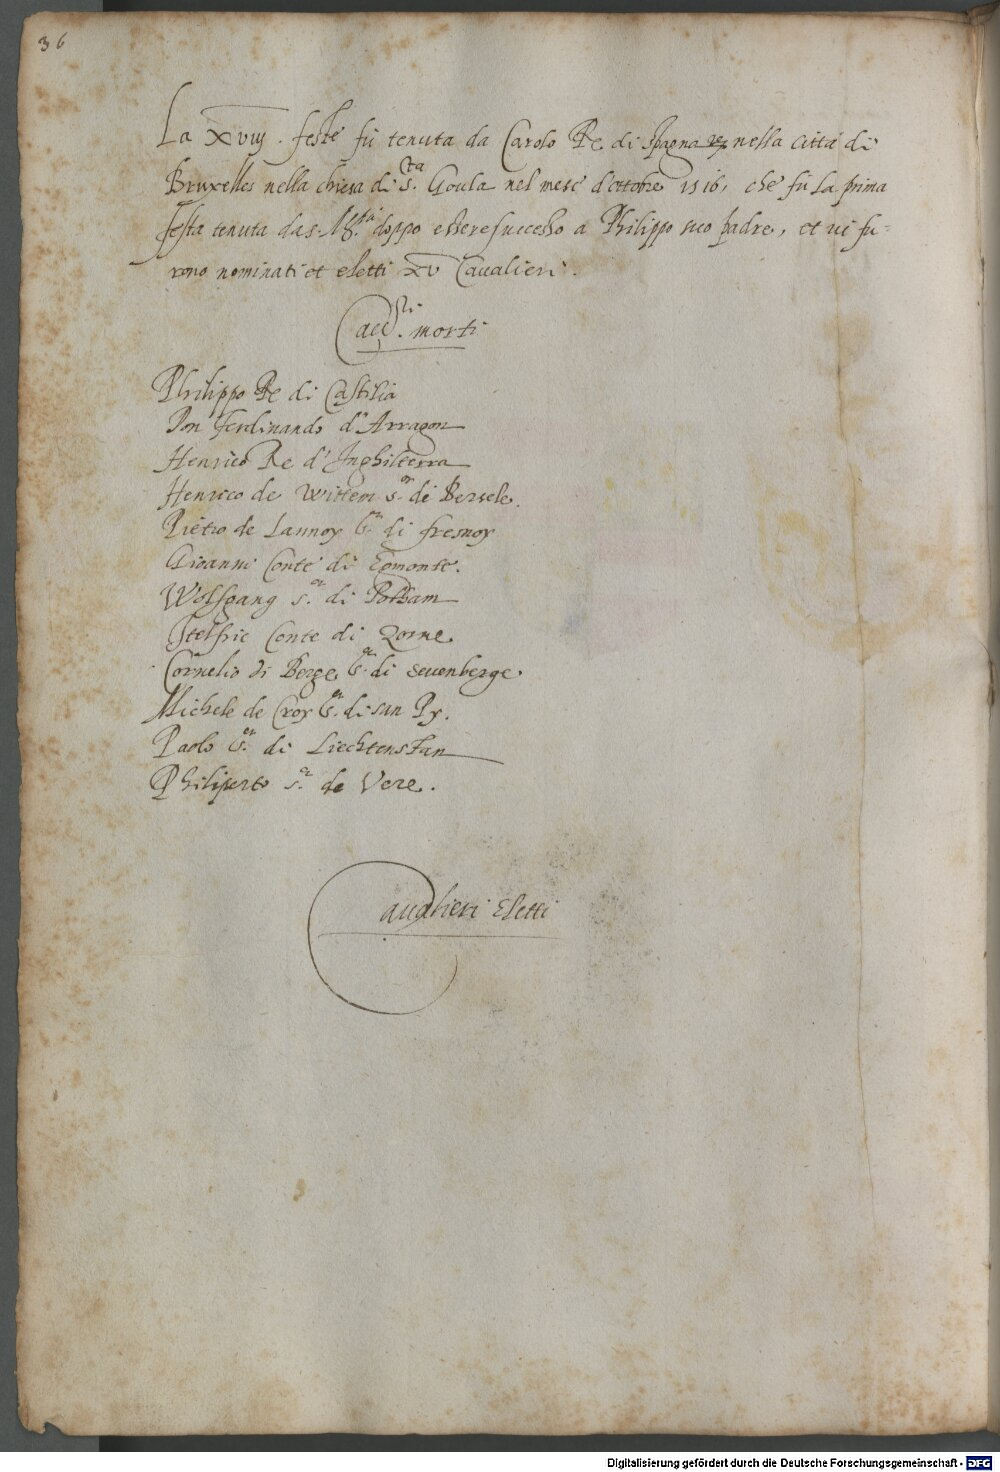 36
La XVIII. feste fù tenuta da Carolo Re di Spagna nella città di
Bruxelles nella chiesa di S.ta Goula nel mese d'ottobre 1516, che fù la prima
festa tenuta da S. M.tà doppo essere successo a Philippo suo padre, et vi fu=
rono nominati et eletti XV Cavalieri.
Cav.ri morti
Philippo Re di Castilia
Don Ferdinando d'Arragon
Henrico Re d'Inghilterra
Henrico de Wittem s.or di Bersele.
Pietro de Lannoy s.or di fresnoy
Gioanni Conte di Egmonte.
Wolfgang s.or di Polham
Itelfric Conte di Zorne
Cornelio di Berge s.or di Sevenberge.
Michele de Croy s.or di san Py.
Paolo s.or di Liechtenstan
Philiperto s.or de Vere.
Cavalieri Eletti
Digitalisierung gefördert durch die Deutsche Forschungsgemeinschaft - DFG